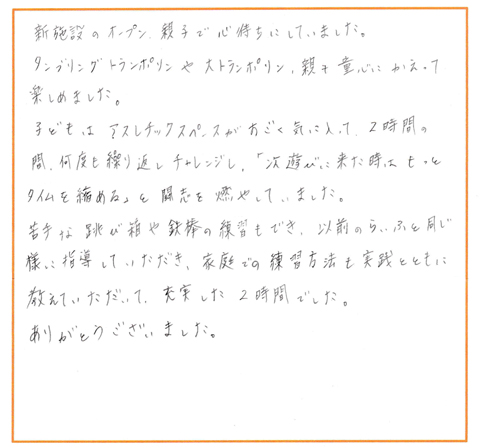 新施設のオープン、親子で心待ちにしていました。
タンブリングトランポリンや大トランポリン、親も童心にかえって
楽しめました。
子どもはアスレチックスペースがすごく気に入って、2時間の
間、何度も繰り返しチャレンジし、「次遊びに来た時はもっと
タイムを縮める」と闘志を燃やしていました。
苦手な跳び箱や鉄棒の練習もでき、以前のらいふと同じ
様に指導していただき、家庭での練習方法も実践とともに
教えていただいて、充実した2時間でした。
ありがとうございました。